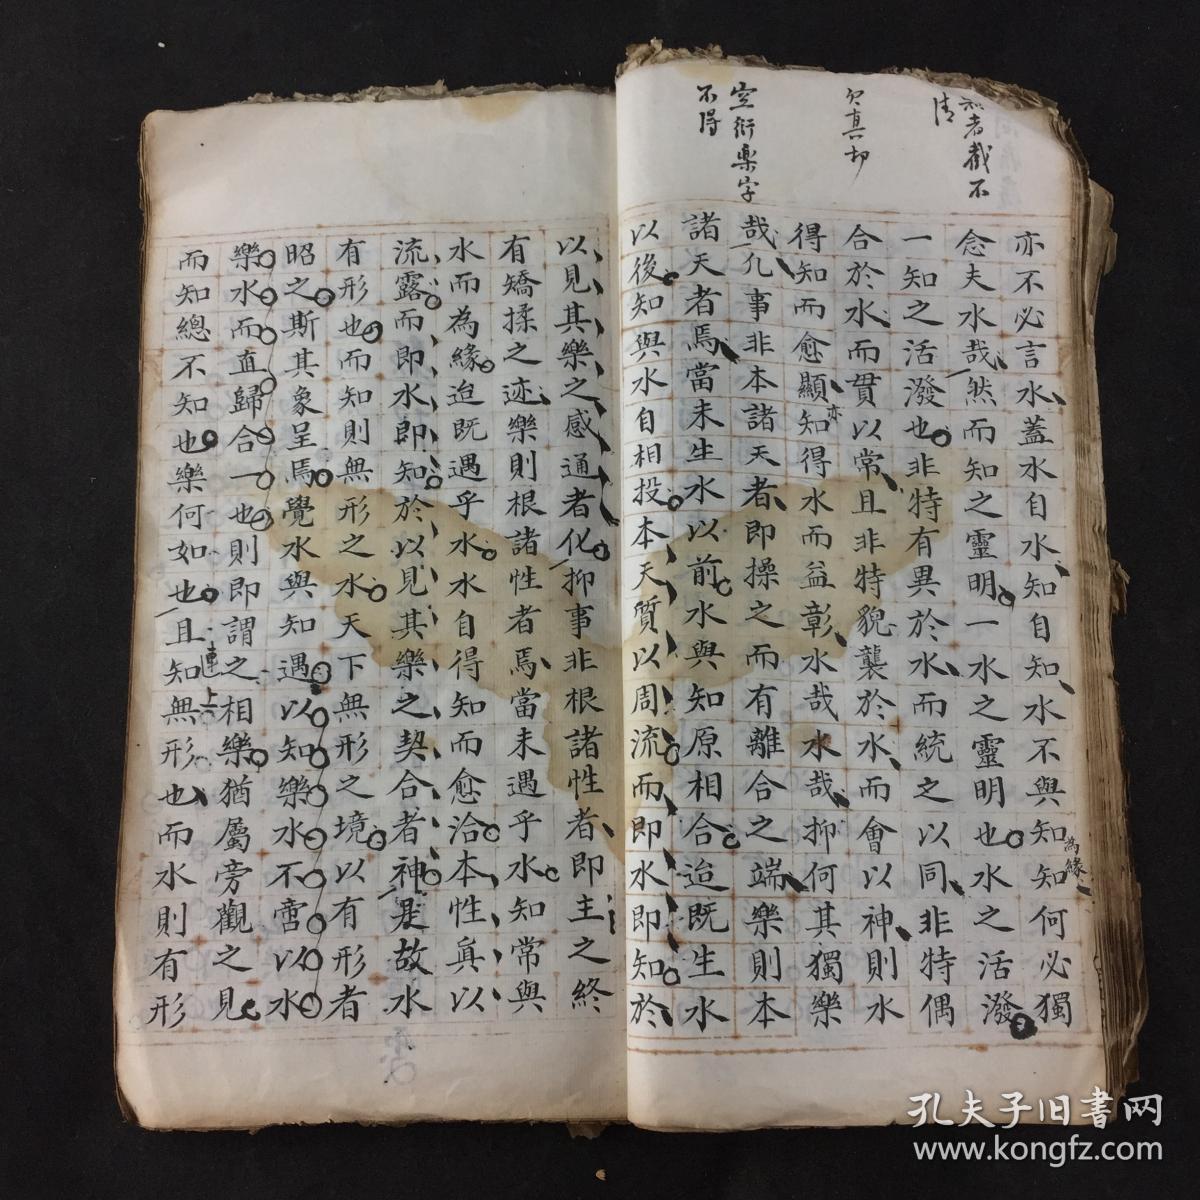 者截不
清
欠真切
空衍樂字
不得
亦不必言水蓋水自水知自知水不與知知何必獨
為緣
念夫水哉然而知之靈明一水之靈明也水之活潑
一知之活潑也非特有異於水而統之以同非特偶
合於水而貫以常且非特貌襲於水而會以神則水
得知而愈顯知得水而益彰水哉水哉抑何其獨樂
亦
哉凡事非本諸天者即操之而有離合之端樂則本
諸天者焉當未生水以前水與知原相合迨既生水
以後知與水自相投本天質以周流而即水即知於
以見其樂之感通者化抑事非根諸性者即主之終
有矯揉之迹樂則根諸性者焉當未遇乎水知常與
水而為緣迨既遇乎水水自得知而愈洽本性真以
流露而即水即知於以見其樂之契合者神是故水
有形也而知則無形之水天下無形之境以有形者
昭之斯其象呈焉覺水與知遇以知樂水不啻以水
樂水而直歸合一也則即謂之相樂猶屬旁觀之見
而知總不知也樂何如也且知無形也而水則有形
連上
孔夫子旧書网
www.kongfz.com